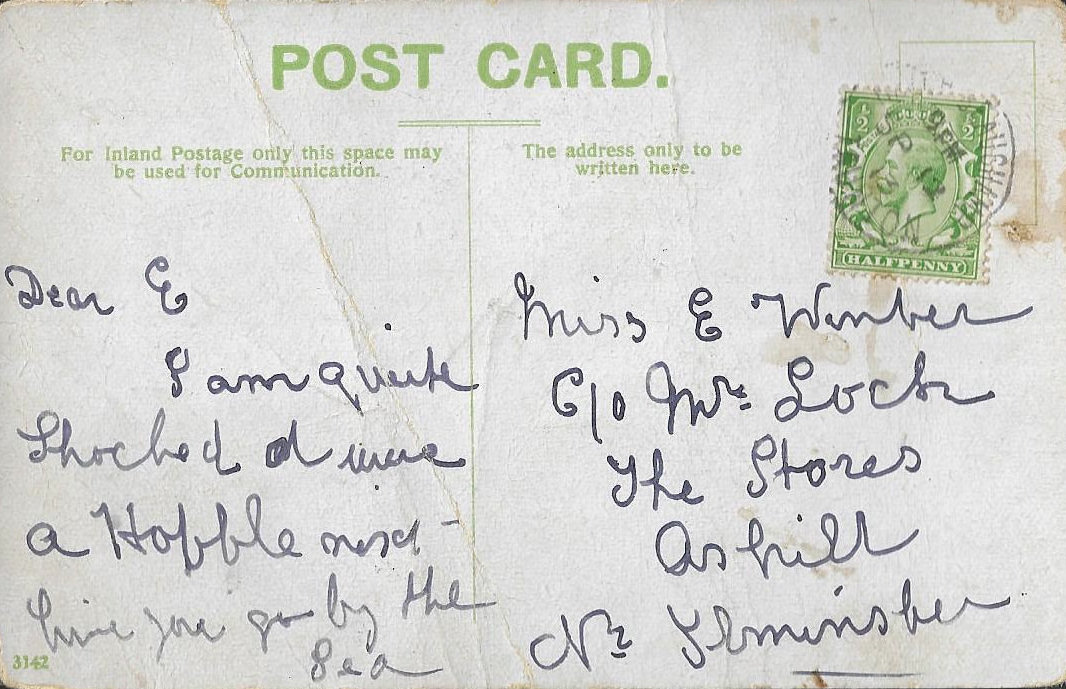 POST CARD.
For Inland Postage only this space may
be used for Communication.
The address only to be
written here.
½ ½
HALFPENNY
Dear E
I am quite
Shocked d wear
a Hobble next
time you go by the
Sea
3142
Miss E Wimber
C/o Mrs Lock
The Stores
Ashill
Nr Ilminster